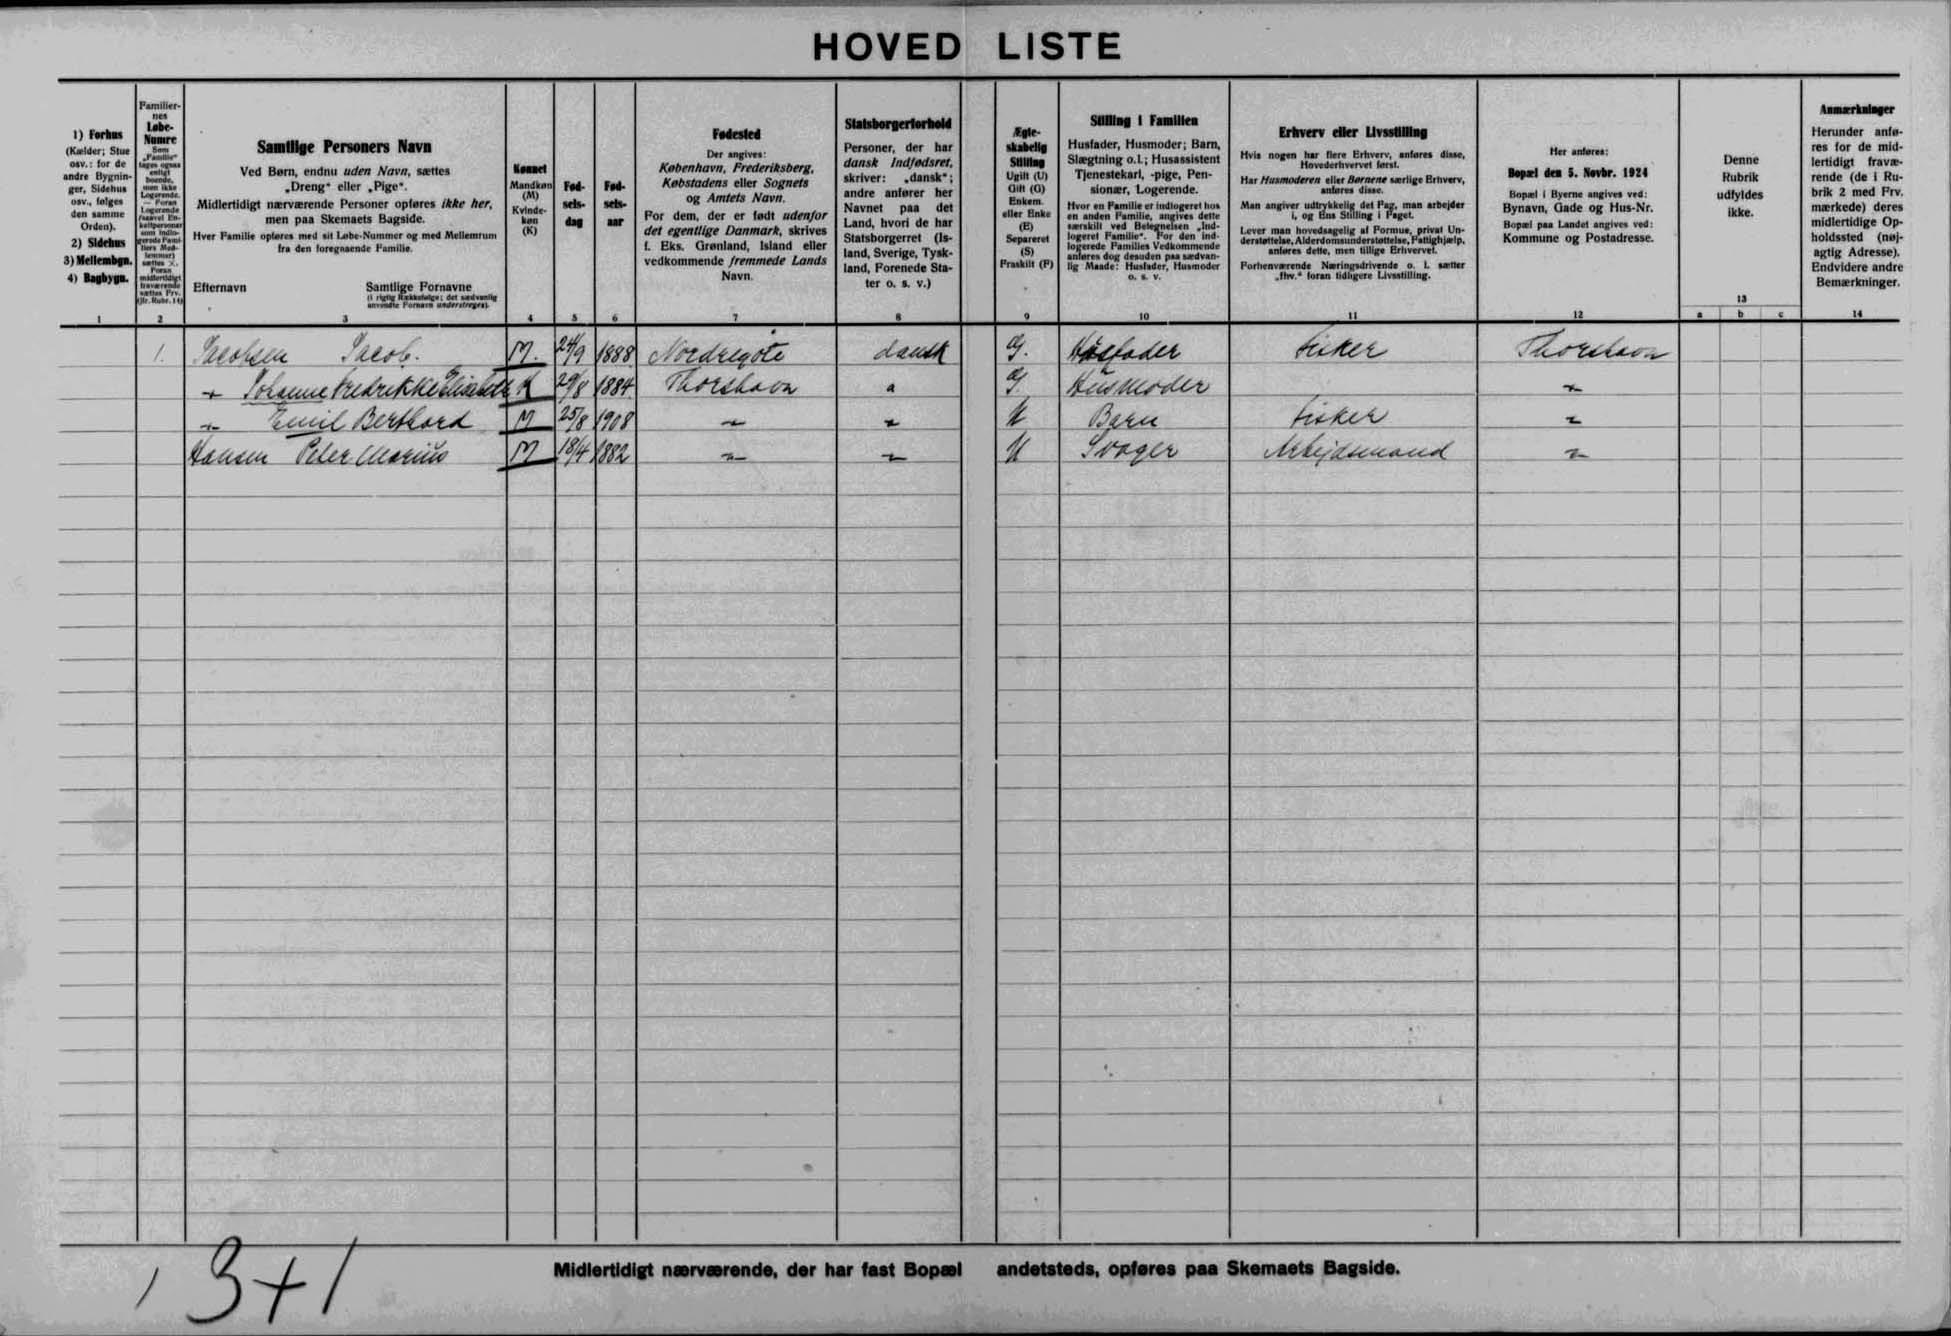 HOVED LISTE
1) Forhus
(Kælder; Stue
osv.: for de
andre Bygnin-
ger, Sidehus
osv., følges
den samme
Orden).
2) Sidehus
3) Mellembgn.
4) Bagbygn.
Familier-
nes
Løbe-
Numre
Som
„Familie"
tages ogsaa
enligt
boende,
men ikke
Logerende.
— Foran
Logerende
(saavel En-
keltpersoner
som indlo-
gerede Fami-
liers Med-
lemmer)
sættes ×.
Foran
midlertidigt
fraværende
sættes Frv.
(jfr. Rubr. 14)
Samtlige Personers Navn
Ved Børn, endnu uden Navn, sættes
„Dreng" eller „Pige".
Midlertidigt nærværende Personer opføres ikke her,
men paa Skemaets Bagside.
Hver Familie opføres med sit Løbe-Nummer og med Mellemrum
fra den foregaaende Familie.
Efternavn
Samtlige Fornavne
(i rigtig Rækkefølge; det sædvanlig
anvendte Fornavn understreges).
Kønnet
Mandkøn
(M)
Kvinde-
køn
(K)
Fød-
sels-
dag
Fød-
sels-
aar
Fødested
Der angives:
København, Frederiksberg,
Købstadens eller Sognets
og Amtets Navn.
For dem, der er født udenfor
det egentlige Danmark, skrives
f. Eks. Grønland, Island eller
vedkommende fremmede Lands
Navn.
Statsborgerforhold
Personer, der har
dansk Indfødsret,
skriver: „dansk";
andre anfører her
Navnet paa det
Land, hvori de har
Statsborgerret (Is-
land, Sverige, Tysk-
land, Forenede Sta-
ter o. s. v.)
Ægte-
skabelig
Stilling
Ugift (U)
Gift (G)
Enkem.
eller Enke
(E)
Separeret
(S)
Fraskilt (F)
Stilling i Familien
Husfader, Husmoder; Barn,
Slægtning o.l.; Husassistent
Tjenestekarl, -pige, Pen-
sionær, Logerende.
Hvor en Familie er indlogeret hos
en anden Familie, angives dette
særskilt ved Betegnelsen „Ind-
logeret Familie". For den ind-
logerede Families Vedkommende
anføres dog desuden paa sædvan-
lig Maade: Husfader, Husmoder
o. s. v.
Erhverv eller Livsstilling
Hvis nogen har flere Erhverv, anføres disse,
Hovederhvervet først.
Har Husmoderen eller Børnene særlige Erhverv,
anføres disse.
Man angiver udtrykkelig det Fag, man arbejder
i, og Ens Stilling i Faget.
Lever man hovedsagelig af Formue, privat Un-
derstøttelse, Alderdomsunderstøttelse, Fattighjælp,
anføres dette, men tillige Erhvervet.
Forhenværende Næringsdrivende o. l. sætter
„fhv." foran tidligere Livsstilling.
Her anføres:
Bopæl den 5. Novbr. 1924
Bopæl i Byerne angives ved:
Bynavn, Gade og Hus-Nr.
Bopæl paa Landet angives ved:
Kommune og Postadresse.
Denne
Rubrik
udfyldes
ikke.
Anmærkninger
Herunder anfø-
res for de mid-
lertidigt fravæ-
rende (de i Ru-
brik 2 med Frv.
mærkede) deres
midlertidige Op-
holdssted (nøj-
agtig Adresse).
Endvidere andre
Bemærkninger.
1 2 3 4 5 6 7 8 9 10 11 12 13 a b c 14
1. Jacobsen Jacob. M. 24/9 1888 Nordregøte dansk G. Husfader Fisker Thorshavn
" Johanne Fredrikke Elisabeth K 29/8 1884 Thorshavn " G. Husmoder "
" Emil Berthard M 25/8 1908 " " U Barn Fisker "
Hansen Peter Marius M 18/4 1882 " " U Svoger Arbejdsmand "
Midlertidigt nærværende, der har fast Bopæl andetsteds, opføres paa Skemaets Bagside.
/ 3+1